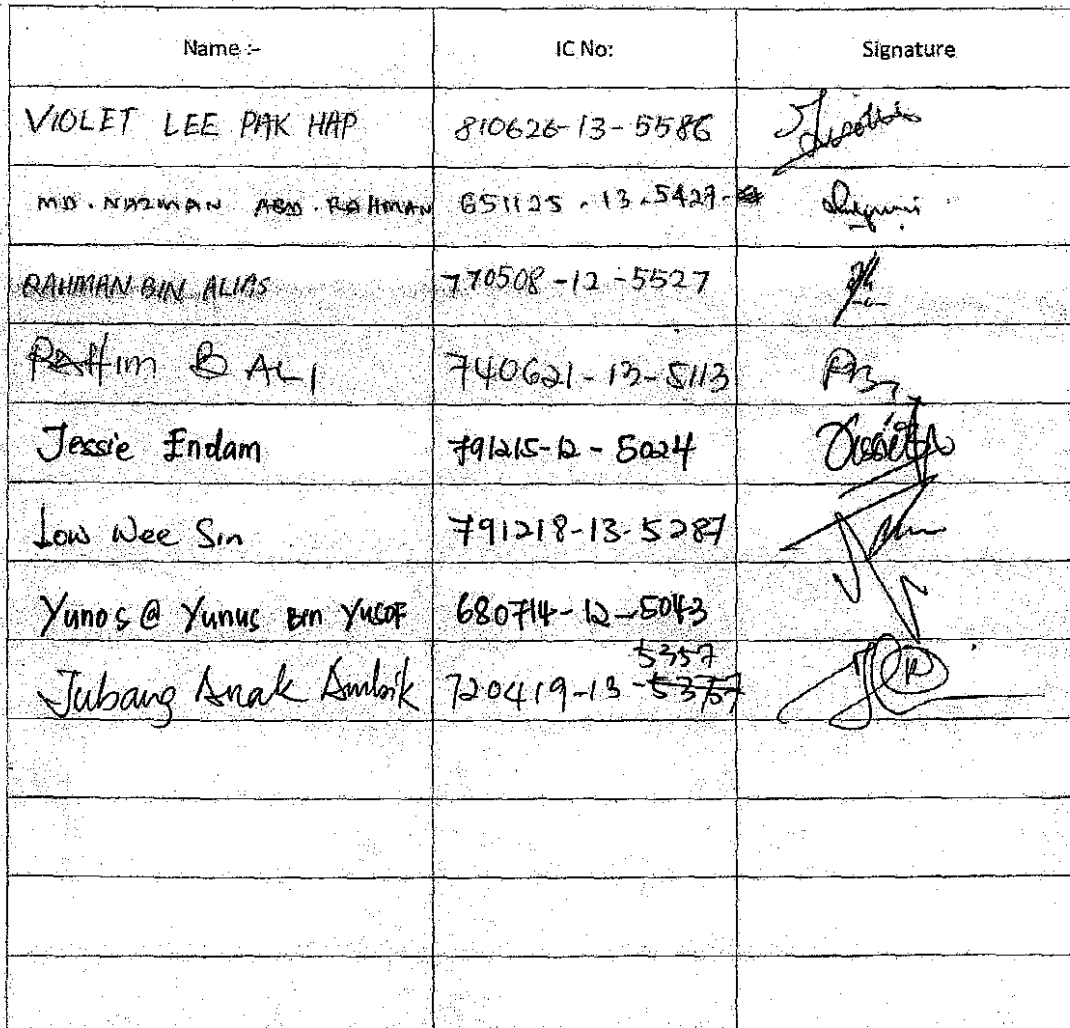 Name :- IC No: Signature
VIOLET LEE PAK HAP 810626-13-5586
MD. NAZMAN ABD. RAHMAN 651125-13-5429
RAHMAN BIN ALIAS 770508-12-5527
RAHIM B ALI 740621-13-5113
Jessie Endam 791215-12-5024
Low Wee Sin 791218-13-5287
Yunos @ Yunus bin YUSOF 680714-12-5043
5357
Jubang Anak Ambik 720419-13-5357